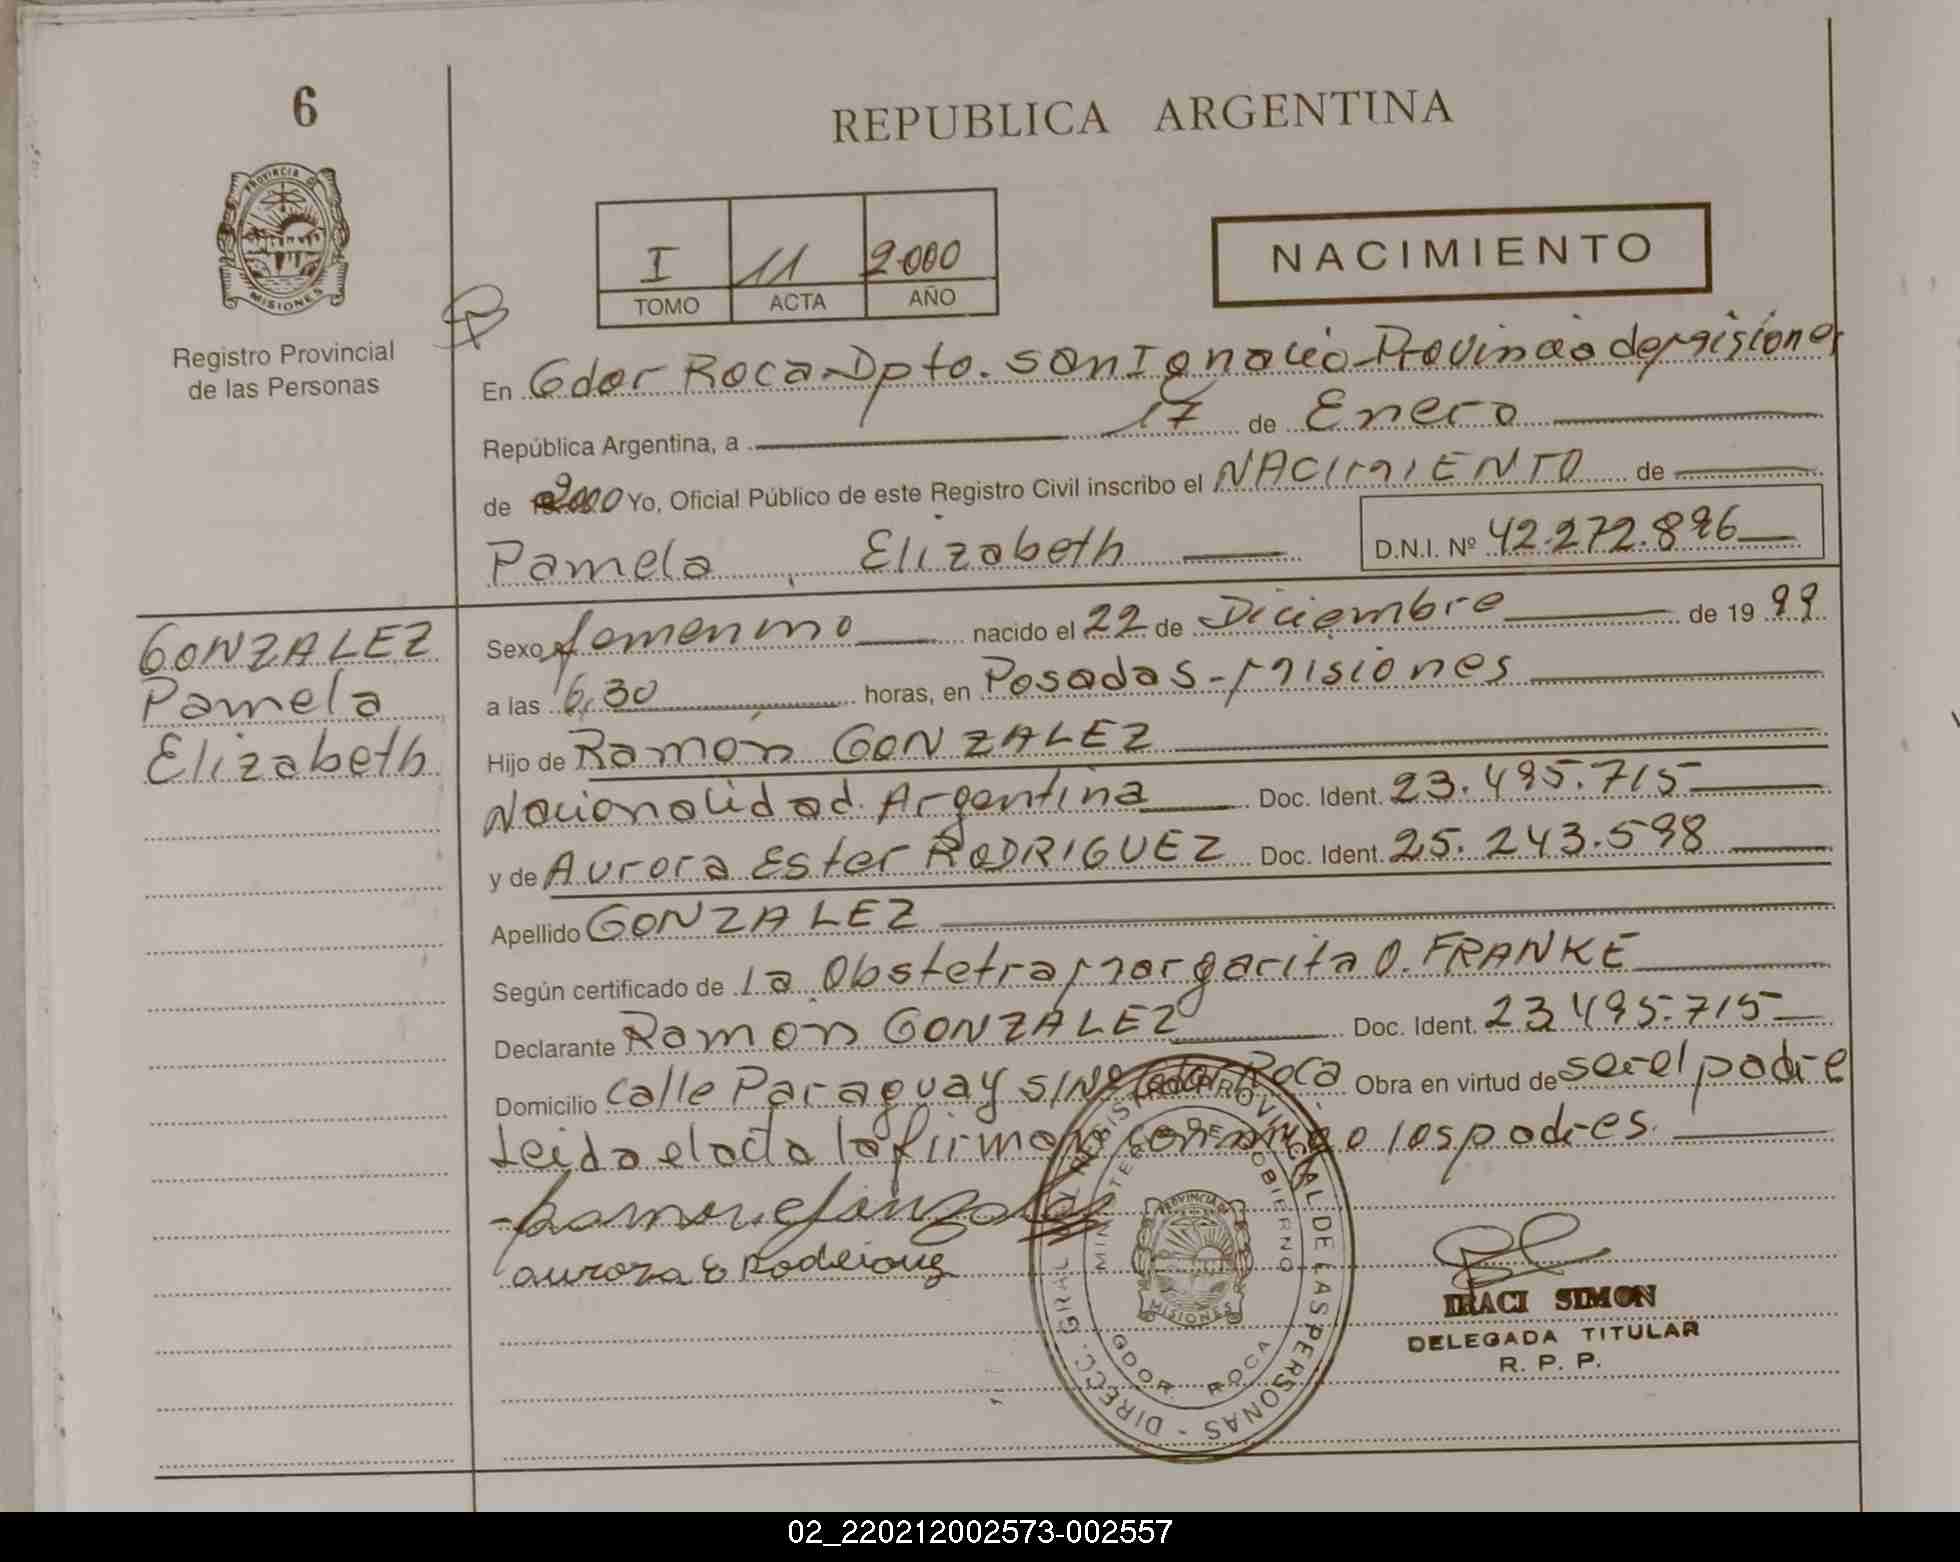 6
REPUBLICA ARGENTINA
PROVINCIA DE
MISIONES
Registro Provincial
de las Personas
I 11 2.000
TOMO ACTA AÑO
NACIMIENTO
En Gdor Roca Dpto. San Ignacio Provincia de Misiones
República Argentina, a 17 de Enero
de 2000 Yo, Oficial Público de este Registro Civil inscribo el NACIMIENTO de
Pamela Elizabeth D.N.I. Nº 42.272.896
GONZALEZ
Pamela
Elizabeth
Sexo femenino nacido el 22 de Diciembre de 19 99
a las 6,30 horas, en Posadas - Misiones
Hijo de Ramón GONZALEZ
Nacionalidad Argentina Doc. Ident. 23.495.715
y de Aurora Ester RODRIGUEZ Doc. Ident. 25.243.598
Apellido GONZALEZ
Según certificado de la Obstetra Margarita O. FRANKE
Declarante Ramón GONZALEZ Doc. Ident. 23.495.715
Domicilio calle Paraguay S/Nº Gdor Roca Obra en virtud de ser el padre
Leida el acta la firman conmigo los padres.
Ramon Gonzalez
aurora E Rodriguez
DIRECC. GRAL. DEL REGISTRO PROVINCIAL DE LAS PERSONAS -
MINISTERIO DE GOBIERNO
PROVINCIA DE
MISIONES
GDOR ROCA
IRACI SIMON
DELEGADA TITULAR
R. P. P.
02_220212002573-002557